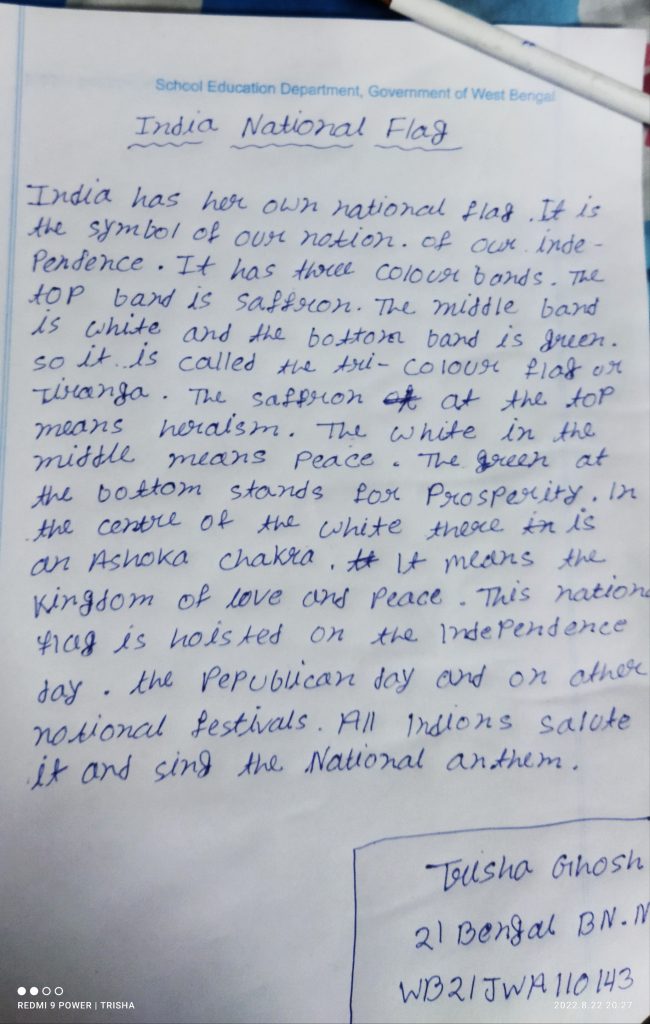 School Education Department, Government of West Bengal
India National Flag
India has her own national flag. It is
the symbol of our nation. of our inde-
Pendence. It has three colour bands. The
top band is saffron. The middle band
is white and the bottom band is green.
so it is called the tri-colour flag or
Tiranga. The saffron at the top
means heraism. The white in the
middle means Peace. The green at
the bottom stands for Prosperity. In
the centre of the white there is
an Ashoka chakra. It means the
Kingdom of love and Peace. This nation
flag is hoisted on the Independence
day. the Pepublican day and on other
national festivals. All Indions salute
it and sing the National anthem.
Trisha Ghosh
21 Bengal BN.N
WB21JWA110143
REDMI 9 POWER | TRISHA
2022.8.22 20:27